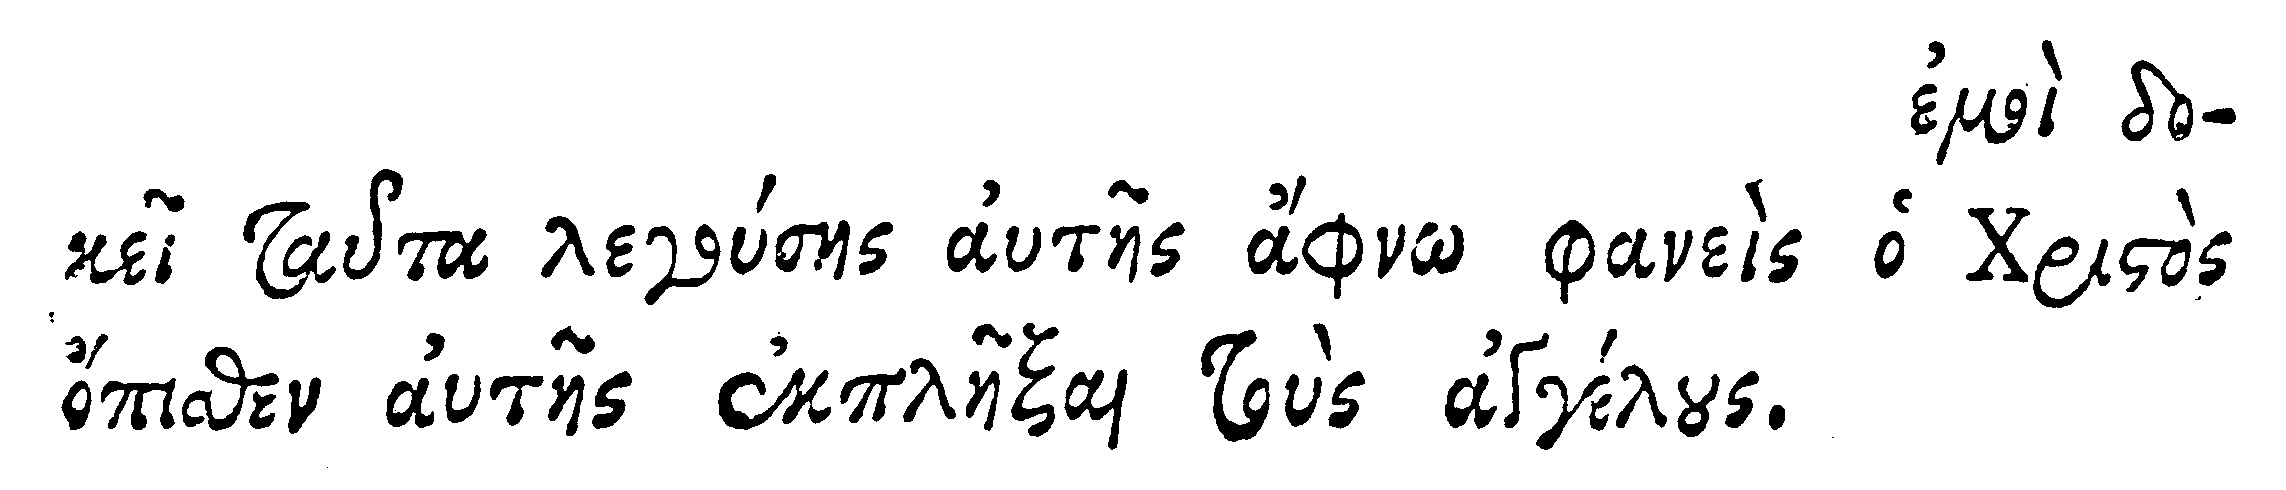 ἐμοὶ δο-
κεῖ ταῦτα λεγούσης ἀυτῆς ἄφνω φανεὶς ὁ Χριστὸς
ὄπισθεν ἀυτῆς ἐκπλῆξαι τοὺς ἀγγέλους.